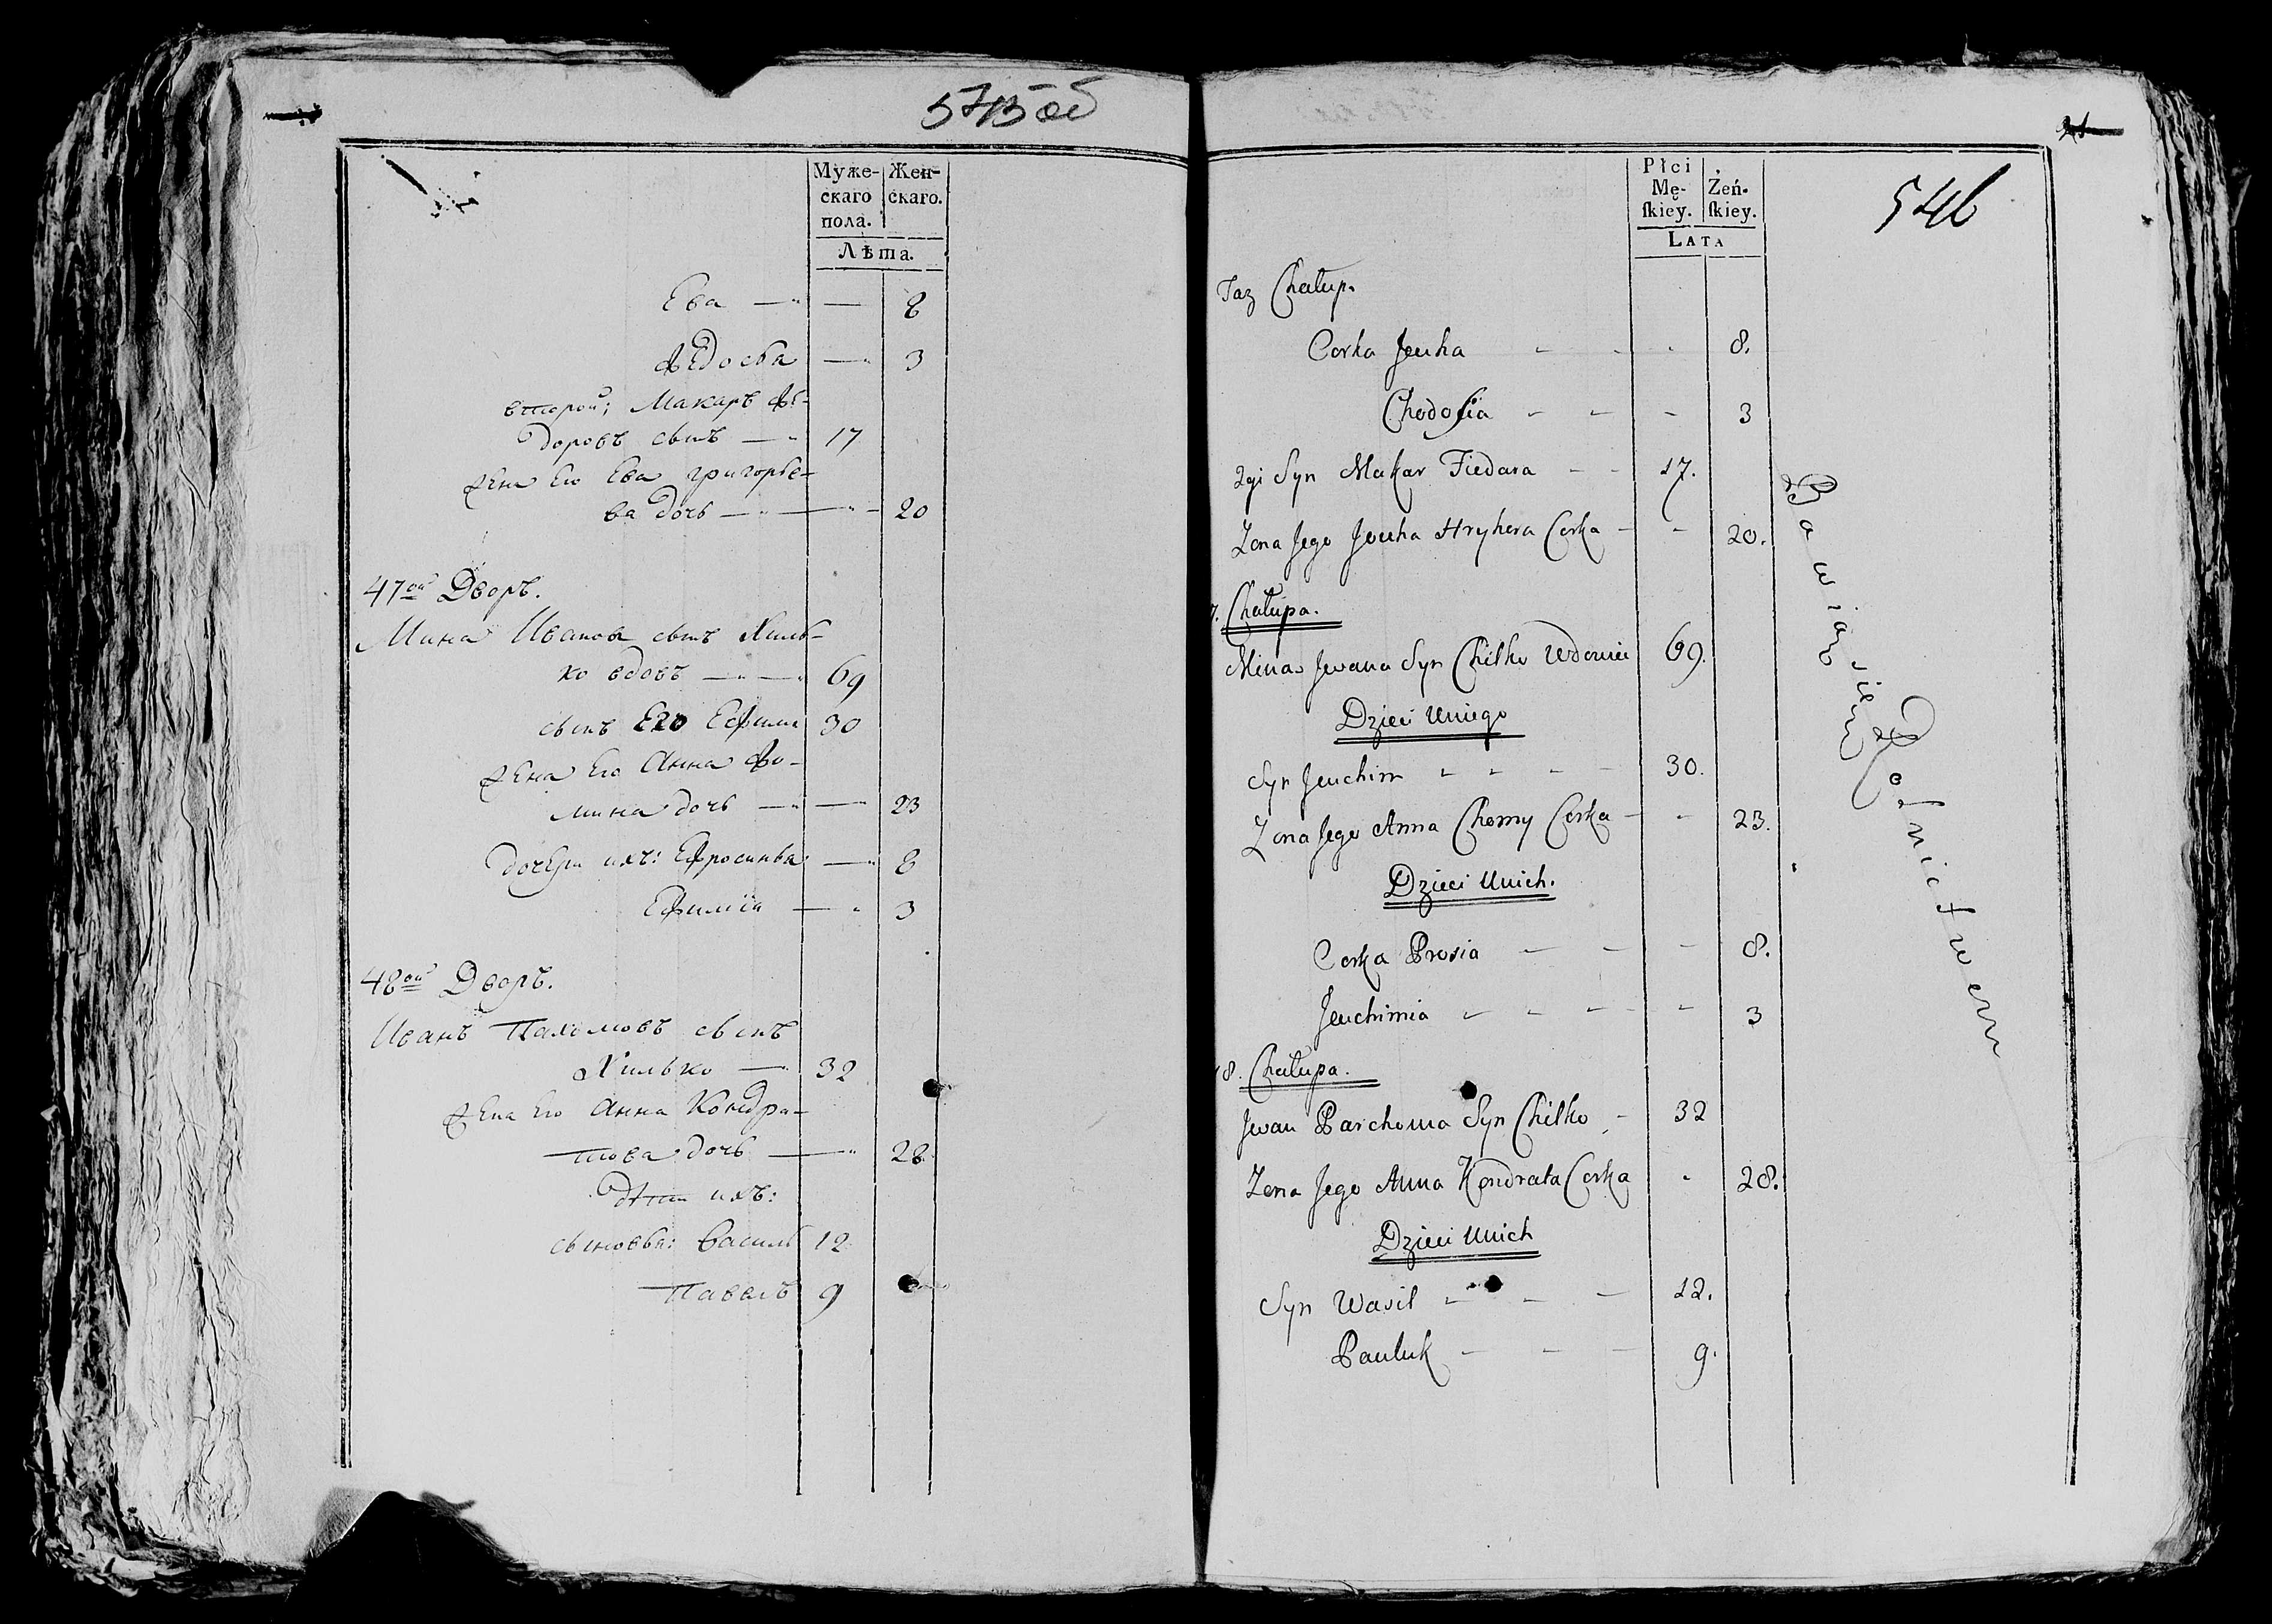 545 об
Муже-
скаго
пола.
Жен-
скаго.
Лѣта.
Ева — — 8
Ѳедосья — 3
второй; Макаръ Ѳе-
доровъ сынъ — 17
жена Его Ева григорье-
ва дочь — — 20
47ой Дворъ.
Мина Иванов сынъ Хиль-
ко вдовъ — — 69
сынъ Его Ефимъ 30
жена Его Анна Ѳо-
мина дочь — — 23
дочери ихъ: Ефросинья — 8
Ефимія — 3
48ой Дворъ.
Иванъ Пахомовъ сынъ
Хилько — 32
жена Его Анна Кондра-
това дочь — 28
дѣти ихъ:
сыновья: Василь 12
Павелъ 9
546
Płci
Mę-
ſkiey.
Żeń-
ſkiey.
LATA
Taż Chałup.
Corka Jeuha - - - 8.
Chodosia - - - 3
2gi Syn Makar Fiedora - - 17.
Zona Jego Jeuha Hryhera Corka - - 20.
7. Chałupa.
Mina Jwana Syn Chilko Wdowiec 69.
Dzieci Uniego
Syn Jeuchim - - - - 30.
Zona Jego Anna Chomy Corka - - 23.
Dzieci Unich.
Corka Prosia - - - 8.
Jeuchimia - - - - - 3
8. Chałupa.
Jwan Parchoma Syn Chilko - 32
Zona Jego Anna Kondrata Corka - 28.
Dzieci Unich
Syn Wasil - - - 12.
Pauluk - - - 9.
Bawiąz się Rolnictwem